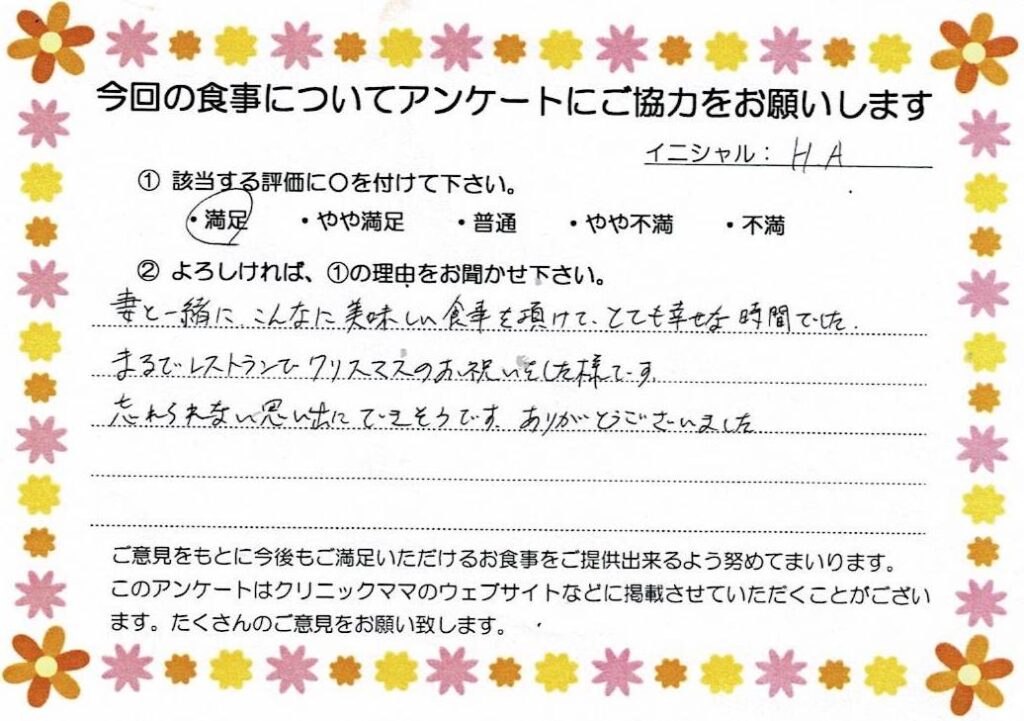 今回の食事についてアンケートにご協力をお願いします
イニシャル： H.A
① 該当する評価に〇を付けて下さい。
・満足 ・やや満足 ・普通 ・やや不満 ・不満
② よろしければ、①の理由をお聞かせ下さい。
妻と一緒に、こんなに美味しい食事を頂けて、とても幸せな時間でした。
まるでレストランでクリスマスのお祝いをした様です。
忘れられない思い出にできそうです。ありがとうございました
ご意見をもとに今後もご満足いただけるお食事をご提供出来るよう努めてまいります。
このアンケートはクリニックママのウェブサイトなどに掲載させていただくことがござい
ます。たくさんのご意見をお願い致します。